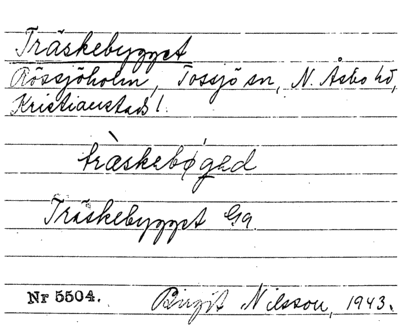 Träskebygget
Rössjöholm, Tossjö sn, N. Åsbo hd,
Kristianstads l.
tràskebø̀gəd
Träskebygget Gg
Nr 5504. Birgit Nilsson, 1943.